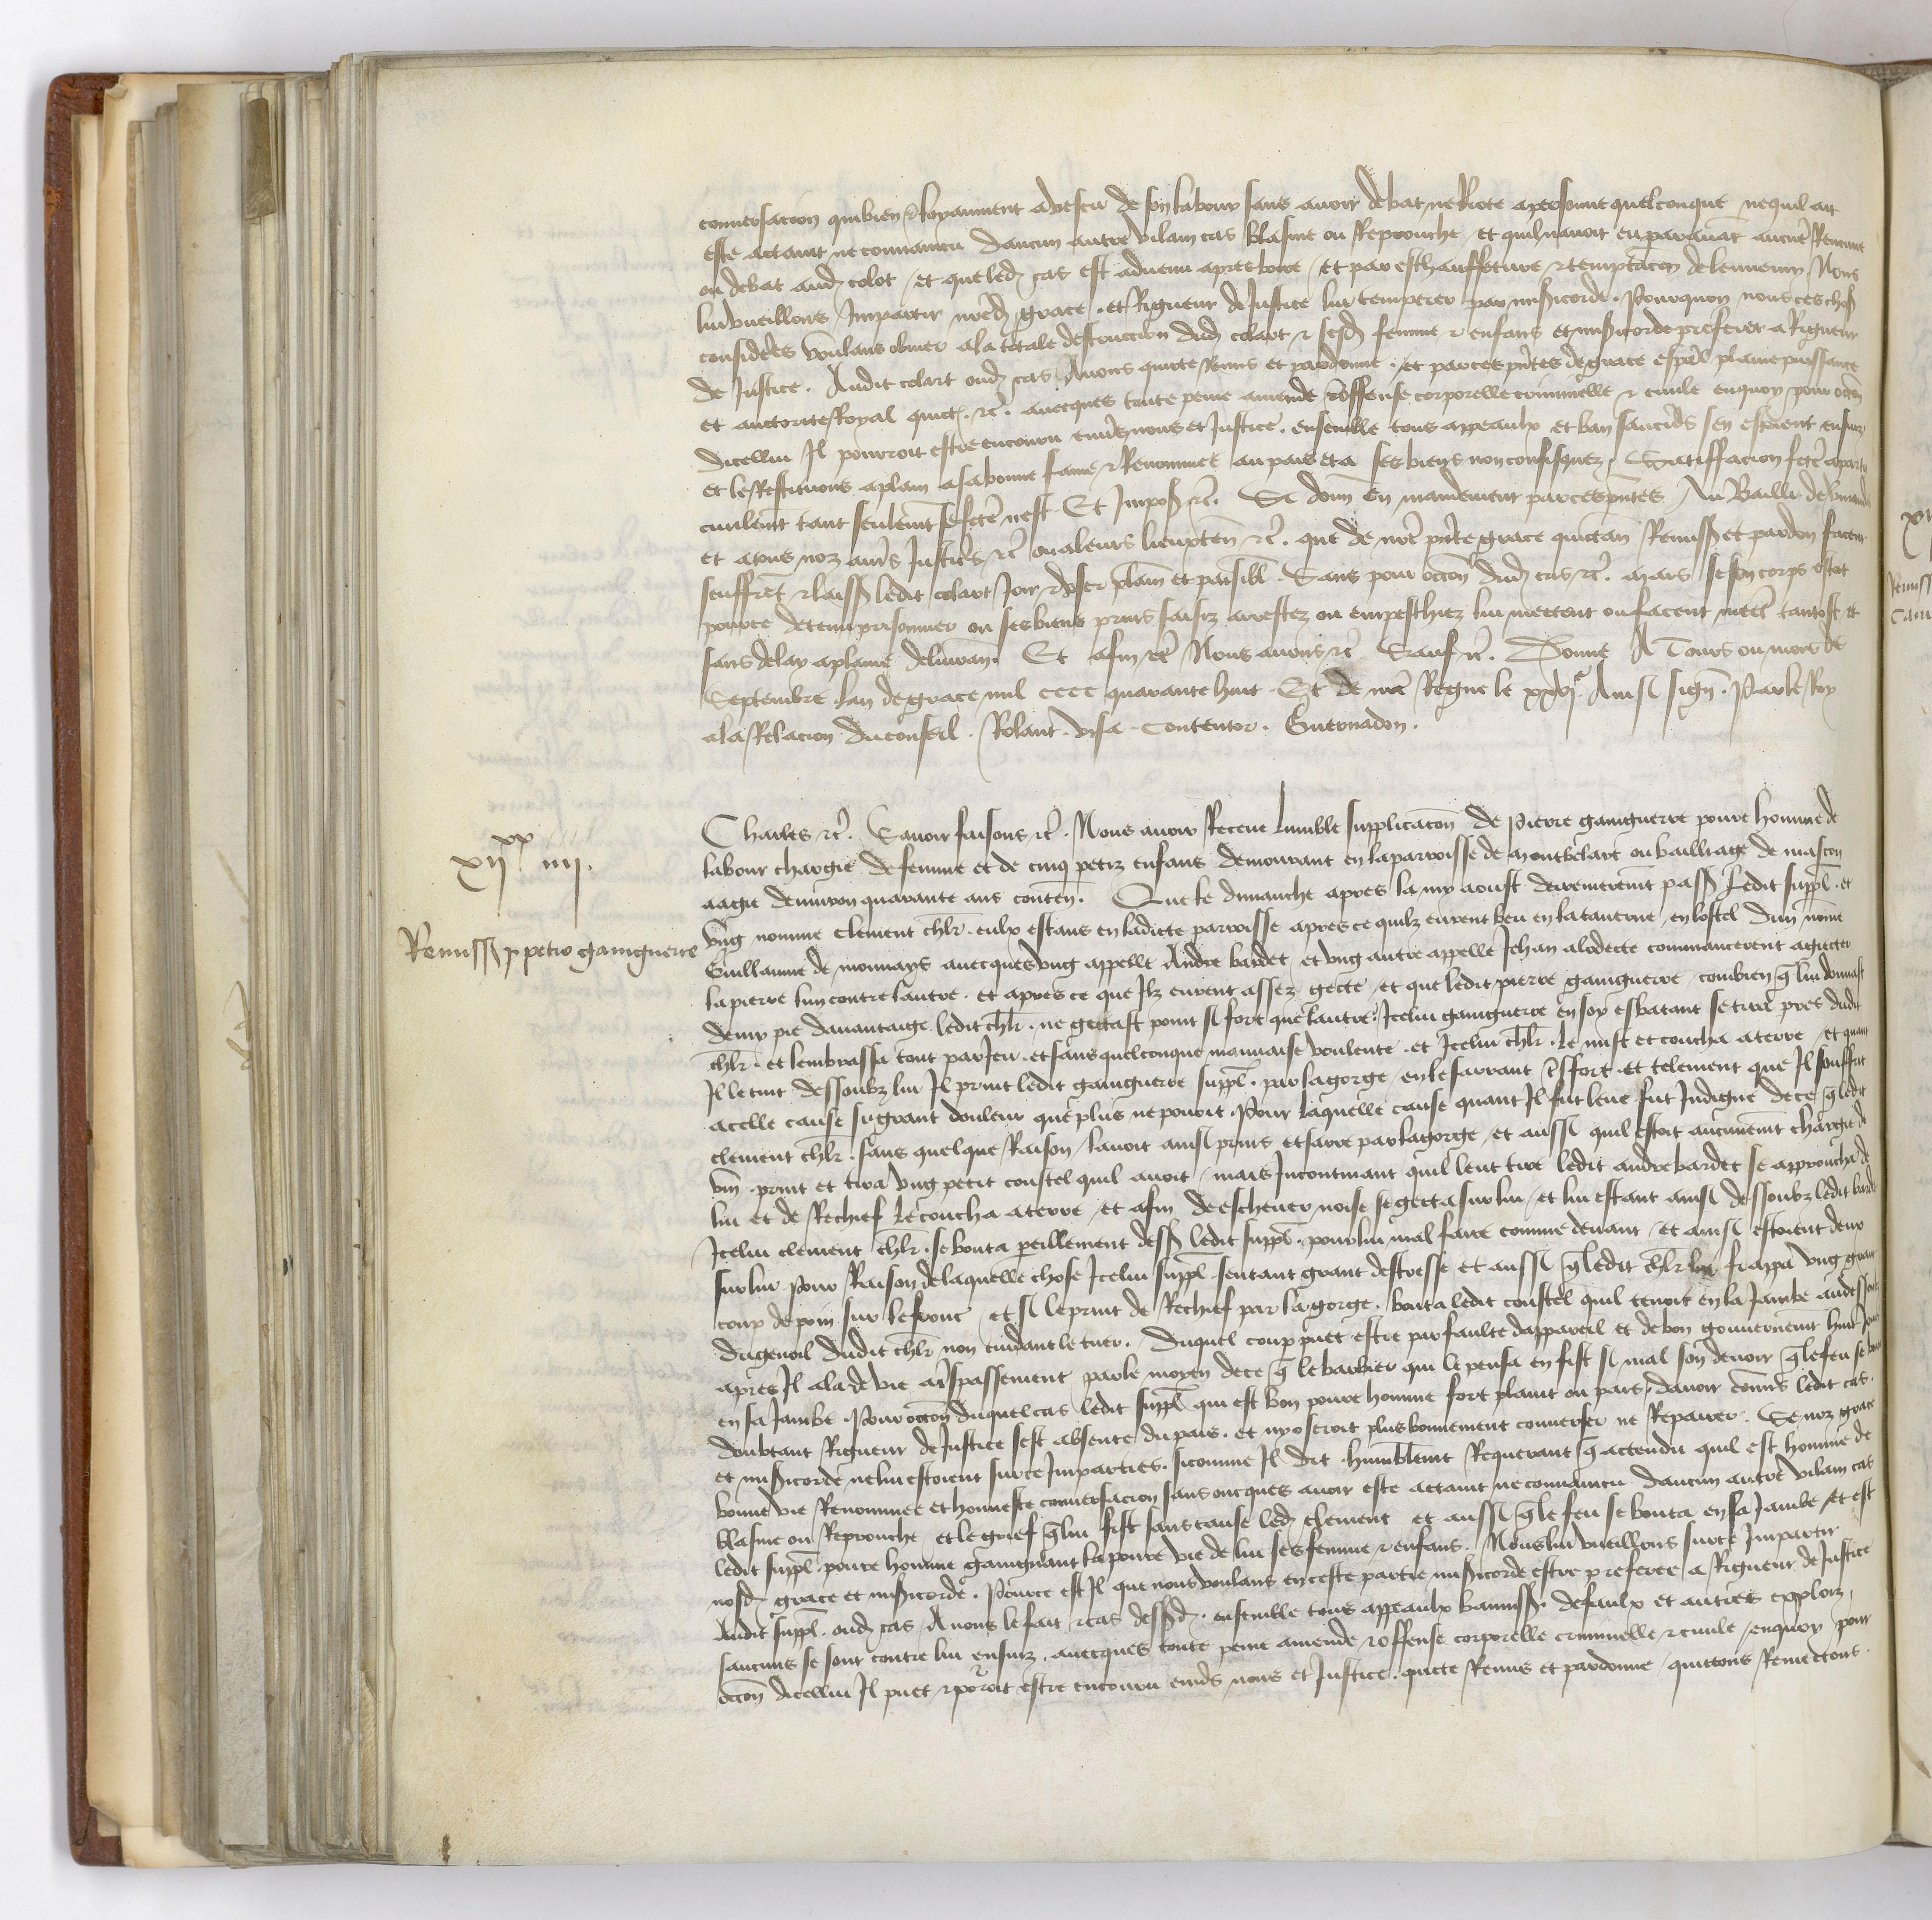 conversacion qui bien & loyaument a vescu de son labour sans avoir debat ne Riote a personne quelconque ne quil ait
este actaint ne convaincu daucun autre vilain cas blasme ou Reprouche et quil navoit en paravat aucue Rencune
ou debat aud colot et que led cas est advenu apres boire et par eschauffeture & temptacon de lennemy Nous
lui vueillons Impartir nred grace et Rigueur de Justice lui temperer par misicorde Pourquoy nous ces choses
considerees voulans obvier a la totale destruction dud colart & sesd femme & enfans et misicorde preferer a Rigueur
de Justice Audit colart oud cas Avons quicte Remis et pardonne et par ces pntes de grace espal plaine puissance
et auctorite Royal quict &c avecques toute peine amende & offense corporelle criminelle & civile en quoy pour occon
dicellui Il pourroit estre encouru envs nous et Justice ensemble tous appeaulx et ban saucuns sen estoient ensuiz
et le Restituons a plain a sa bonne fame & Renommee au pais et a ses biens non confisquez Satisfacion fcte a partie
civilemt tant seulemt se fcte nest Et Imposs &c Si donn en mandement par ces pntes Au Bailli de
et a tous noz aurs Justicrs &c ou a leurs lieuxten &c que de nre pnte grace quictan Remiss et pardon facent
seuffret & laissent ledit colart Joir & user plam et paisibl Sans pour occon dud cas &c mais se son corps estoit
pource detenu prisonnier ou ses biens prins saisiz arrestez ou empeschiez lui mettent ou facent mecte tantost et
sans delay a plaine delivran Et afin &c Nous avons &c Sauf &c Donne A Tours ou mois de
Septembre lan de grace mil cccc quarante huit Et de nre Regne le xxvie Ainsi sign Par le Roy
a la Relacion du conseil Rolant visa Contentor

xiixx iiii
Remiss p petro gainguerre

Charles &c Savoir faisons &c Nous avoir Receu lumble supplicacon de Pierre gainguerre povre homme de
labour chargie de femme et de cinq petiz enfans demourant en la parroisse de montbelart ou bailliage de mascon
aagie denviron quarante ans conten Que le dimanche apres la my aoust derrenieremt passe ledit suppl et
ung nomme clement chlr eulx estans en ladicte parroisse apres ce quilz eurent beu en la taverne en lostel dun nome
Guillaume de monnays avecques ung appelle Andre bardet et ung autre appelle Jehan alodecte commancerent a gecter
la pierre lun contre lautre et apres ce que Ilz eurent assez gecte et que ledit pierre gainguerre combien q lui donnast
demy pie davantaige ledit chlr ne gectast point si fort que lautre Icelui gainguerre en soy esbatant se tire pres dudit
chlr et lembrassa tout par Jeu et sans quelconque mauvaise voulente et Icelui chlr le mist et coucha a terre et quant
Il le tint dessoubz lui Il print ledit gainguerre suppl par la gorge en le sarrant si fort et telement que Il souffrit
a celle cause si grant douleur que plus ne povoit Pour laquelle cause quant Il fut leve fut Indigne de ce q ledit
clement chlr sans quelque Raison lavoit ainsi prins et sarre par la gorge et aussi quil estoit aucunemt chargie de
vin print et tira ung petit coustel quil avoit mais Incontinant quil leut tire ledit andre bardet se approucha de
lui et de Rechief le coucha a terre et afin de eschever noise se gecta sur lui et lui estant ainsi dessoubz ledit bardet
Icelui clement chlr se bouta pareillement dess ledit suppl pour lui mal faire comme devant et ainsi estoient deux
sur lui Pour Raison de laquelle chose Icelui suppl sentant grant destresse et aussi q ledit chlr lui frappa ung grant
coup de poin sur le front et si le print de Rechief par la gorge bouta ledit coustel quil tenoit en la Jambe au dessoubz
du genoil dudit chlr non cuidant le tuer Duquel coup puet estre par faulte dappareil et de bon gouvernemt huit Jours
apres Il ala de vie a trespassement par le moyen de ce q le barbier qui le pensa en fist si mal son devoir q le feu se bouta
en sa Jambe Pour occon duquel cas ledit suppl qui est bon povre homme fort plaint ou pais davoir commis ledit cas
doubtant Rigueur de Justice sest absente du pais et ny oseroit plus bonnement converser ne Repairer Se noz grace
et misicorde ne lui estoient sur ce Imparties sicomme Il dit humblemt Requerant q actendu quil est homme de
bonne vie Renommee et honneste conversacion sans oncques avoir este actaint ne convaincu daucun autre vilain cas
blasme ou Reprouche et le grief q lui fist sans cause led clement et aussi q le feu se bouta en sa Jambe et est
ledit suppl povre homme gaingnant la povre vie de lui ses femme & enfans Nous lui vueillons sur ce Impartir
nosd grace et misicorde Pource est Il que nous voulans en ceste partie misicorde estre preferee a Rigueur de Justice
Audit suppl oud cas Avons le fait & cas dessd ensemble tous appeaulx banniss defaulx et autres exploiz
saucuns se sont contre lui ensuiz avecques toute peine amende & offense corporelle criminelle & civile en quoy pour
occon dicellui Il puet & poroit estre encouru envs nous et Justice quicte Remis et pardonne quictons Remectons